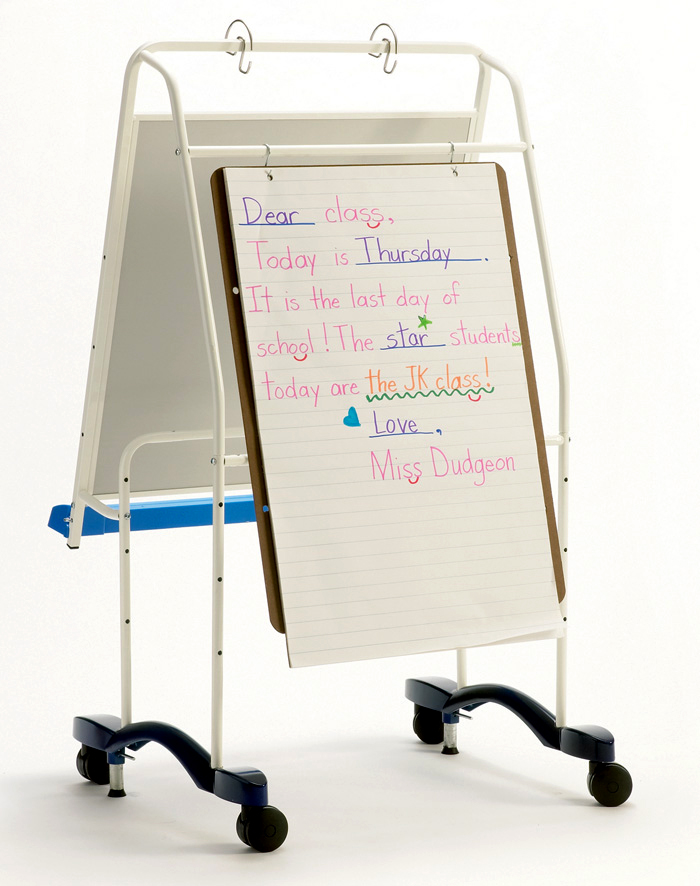 Dear class,
Today is Thursday.
It is the last day of
school! The star students
today are the JK class!
Love,
Miss Dudgeon